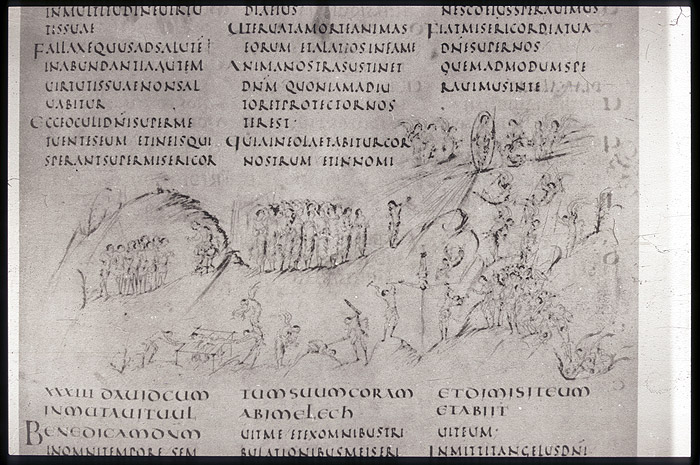 INMULTITUDINEUIRTU
TISSUAE
FALLAXEQUUSADSALUTĒ
INABUNDANTIAAUTEM
UIRTUTISSUAENONSAL
UABITUR
ECCEOCULIDNISUPERME
TUENTESEUM ETINEISQUI
SPERANTSUPERMISERICOR
DIAEIUS
UTERUATAMORTEANIMAS
EORUM ETALATEOSINFAME
ANIMANOSTRASUSTINET
DNM QUONIAMADIU
TORETPROTECTORNOS
TEREST
QUIAINEOLAETABITURCOR
NOSTRUM ETINNOMI
NESCOEIUSSPERAUIMUS
FIATMISERICORDIATUA
DNESUPERNOS
QUEMADMODUMSPE
RAUIMUSINTE
XXXIII DAUIDCUM
INMUTAUITUUL
TUMSUUMCORAM
ABIMELECH
ETDIMISITEUM
ETABIIT
BENEDICAMDNM
INOMNITEMPORE SEM
UITME ETEXOMNIBUSTRI
BULATIONIBUSMEISERI
UITEUM
INMITTITANGELUSDNI